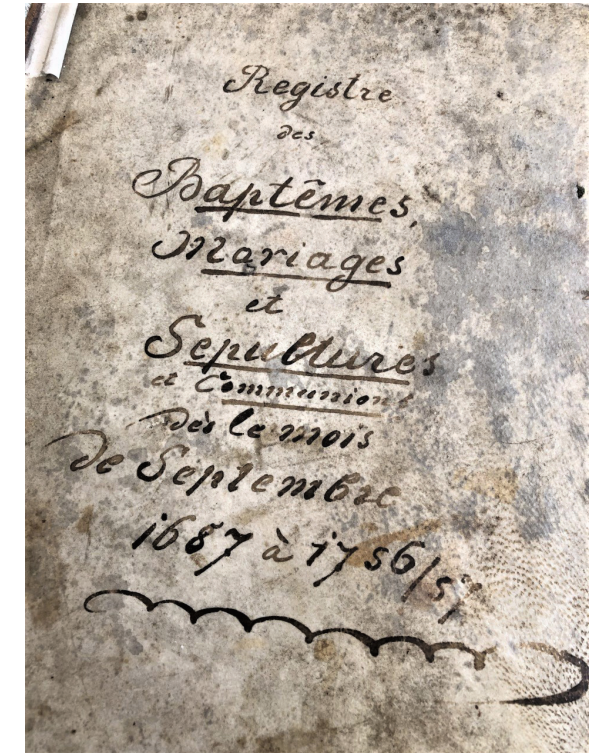 Registre
des
Baptêmes,
Mariages
et
Sepultures
et Communions
dès le mois
de Septembre
1687 à 1756/57